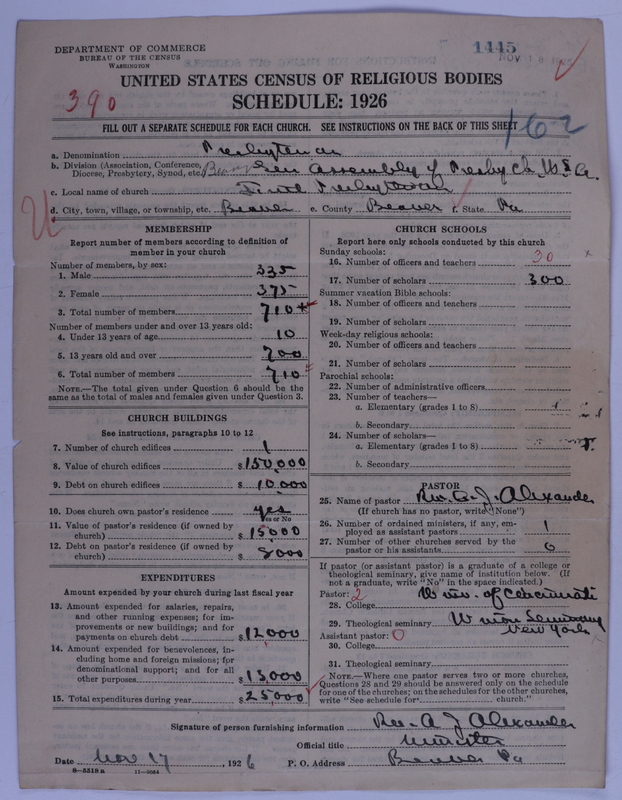 DEPARTMENT OF COMMERCE
BUREAU OF THE CENSUS
WASHINGTON
1445
NOV 19
UNITED STATES CENSUS OF RELIGIOUS BODIES
390
SCHEDULE: 1926
FILL OUT A SEPARATE SCHEDULE FOR EACH CHURCH. SEE INSTRUCTIONS ON THE BACK OF THIS SHEET
162
a. Denomination Presbyterian
b. Division (Association, Conference, Diocese, Presbytery, Synod, etc.) Gen Assembly of Presby Ch U.S.A.
c. Local name of church First Presbyterian
d. City, town, village, or township, etc. Beaver e. County Beaver f. State Pa
MEMBERSHIP
Report number of members according to definition of
member in your church
Number of members, by sex:
1. Male 335
2. Female 375
3. Total number of members 710
Number of members under and over 13 years old:
4. Under 13 years of age 10
5. 13 years old and over 700
6. Total number of members 710
NOTE.—The total given under Question 6 should be the
same as the total of males and females given under Question 3.
CHURCH BUILDINGS
See instructions, paragraphs 10 to 12
7. Number of church edifices 1
8. Value of church edifices $150,000
9. Debt on church edifices $10,000
10. Does church own pastor's residence yes
Yes or No
11. Value of pastor's residence (if owned by
church) $15000
12. Debt on pastor's residence (if owned by
church) $8000
EXPENDITURES
Amount expended by your church during last fiscal year
13. Amount expended for salaries, repairs,
and other running expenses; for im-
provements or new buildings; and for
payments on church debt $12000
14. Amount expended for benevolences, in-
cluding home and foreign missions; for
denominational support; and for all
other purposes $13000
15. Total expenditures during year $25000
CHURCH SCHOOLS
Report here only schools conducted by this church
Sunday schools:
16. Number of officers and teachers 30
17. Number of scholars 300
Summer vacation Bible schools:
18. Number of officers and teachers
19. Number of scholars
Week-day religious schools:
20. Number of officers and teachers
21. Number of scholars
Parochial schools:
22. Number of administrative officers
23. Number of teachers—
a. Elementary (grades 1 to 8)
b. Secondary
24. Number of scholars—
a. Elementary (grades 1 to 8)
b. Secondary
PASTOR
25. Name of pastor Rev. A. J. Alexander
(If church has no pastor, write "None")
26. Number of ordained ministers, if any, em-
ployed as assistant pastors 1
27. Number of other churches served by the
pastor or his assistants 0
If pastor (or assistant pastor) is a graduate of a college or
theological seminary, give name of institution below. (If
not a graduate, write "No" in the space indicated.)
Pastor: 2
28. College Univ. of Cincinnati
29. Theological seminary Union Seminary
New York
Assistant pastor: 0
30. College
31. Theological seminary
NOTE.—Where one pastor serves two or more churches,
Questions 28 and 29 should be answered only on the schedule
for one of the churches; on the schedules for the other churches,
write "See schedule for church."
Signature of person furnishing information Rev. A J Alexander
Official title Minister
Date Nov 17, 1926 P. O. Address Beaver Pa
8—5518 a 11—9054